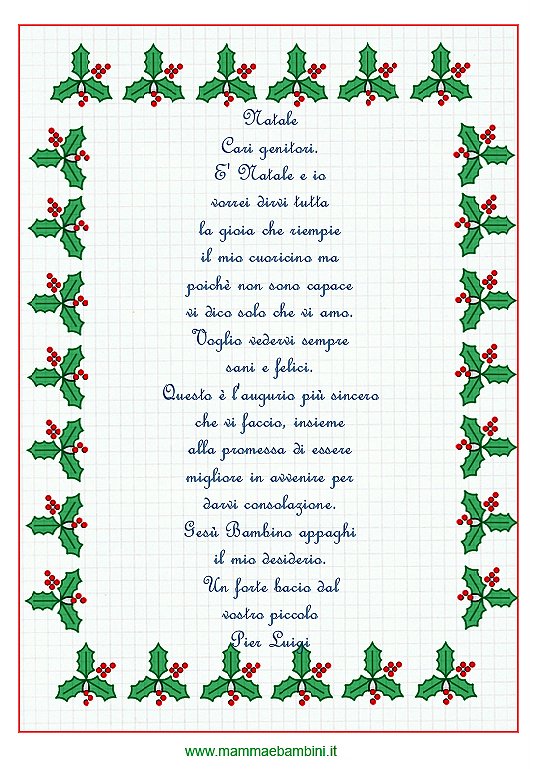 Natale
Cari genitori.
E' Natale e io
vorrei dirvi tutta
la gioia che riempie
il mio cuoricino ma
poichè non sono capace
vi dico solo che vi amo.
Voglio vedervi sempre
sani e felici.
Questo è l'augurio più sincero
che vi faccio, insieme
alla promessa di essere
migliore in avvenire per
darvi consolazione.
Gesù Bambino appaghi
il mio desiderio.
Un forte bacio dal
vostro piccolo
Pier Luigi
www.mammaebambini.it